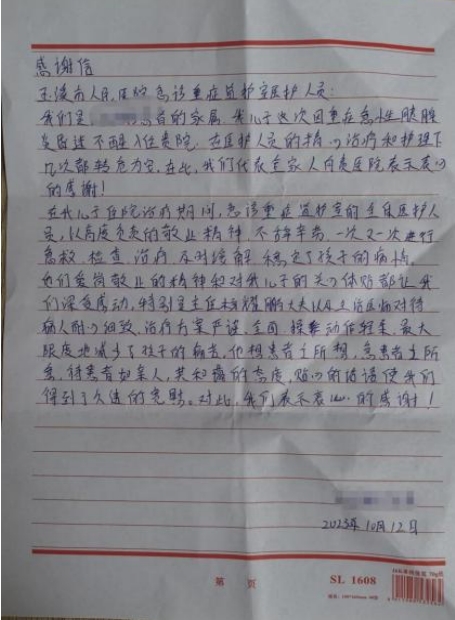 感谢信
玉溪市人民医院急诊重症监护室医护人员:
我们是 患者的家属,我儿子这次因重症急性胰腺
炎 不醒入住贵院,在医护人员的精心治疗和护理下
几次都转危为安,在此,我们代表全家人向贵医院表示衷心
的感谢!
在我儿子住院治疗期间,急诊重症监护室的全体医护人
员,以高度负责的敬业精神,不辞辛劳一次又一次进行
急救、检查、治疗,及时缓解稳定了孩子的病情。
他们爱岗敬业的精神和对我儿子的关心体贴都让我
们深受感动,特别是主任 鹏大夫以及主治医师对待
病人耐心细致,治疗方案严谨、全面,操作动作轻柔,最大
限度地减少了孩子的痛苦,他想患者之所想,急患者之所
急,待患者如亲人,其和蔼的态度,贴心的话语使我们
得到了久违的 。对此,我们表示衷心的感谢!
2023年10月12日
第 页
SL 1608